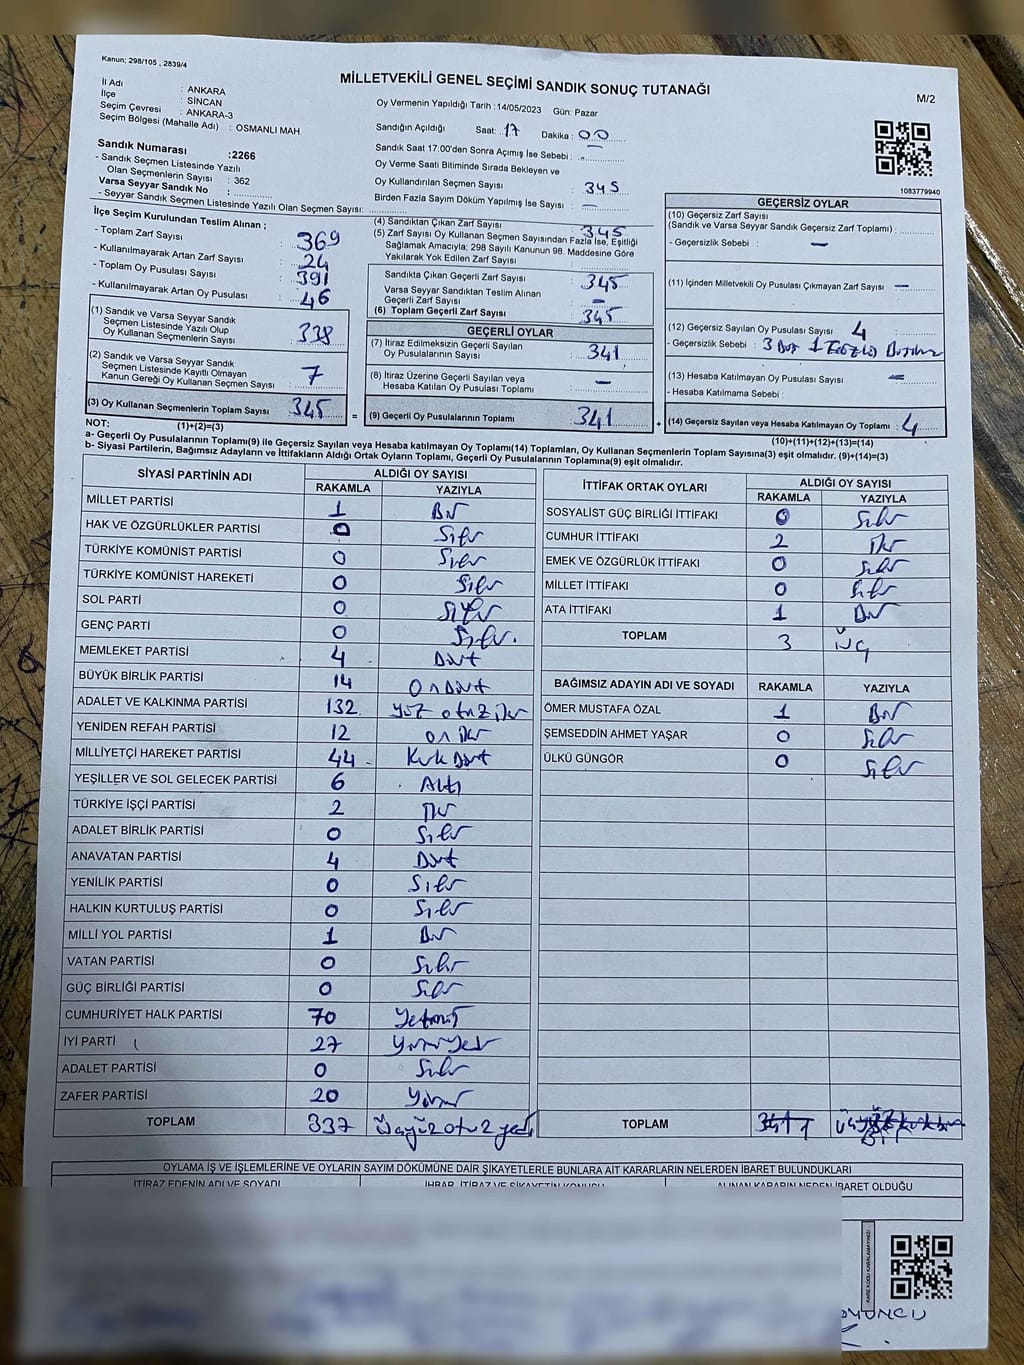 Kanun; 298/105 , 2839/4
MİLLETVEKİLİ GENEL SEÇİMİ SANDIK SONUÇ TUTANAĞI
M/2
İl Adı : ANKARA
İlçe : SİNCAN
Seçim Çevresi : ANKARA-3
Seçim Bölgesi (Mahalle Adı) : OSMANLI MAH.
Sandık Numarası :2266
- Sandık Seçmen Listesinde Yazılı
Olan Seçmenlerin Sayısı : 362
Varsa Seyyar Sandık No :
- Seyyar Sandık Seçmen Listesinde Yazılı Olan Seçmen Sayısı:
Oy Vermenin Yapıldığı Tarih :14/05/2023 Gün: Pazar
Sandığın Açıldığı Saat: 17 Dakika : 00
Sandık Saat 17:00'den Sonra Açımış İse Sebebi : -
Oy Verme Saati Bitiminde Sırada Bekleyen ve
Oy Kullandırılan Seçmen Sayısı : 345
Birden Fazla Sayım Döküm Yapılmış İse Sayısı : -
1083779940
İlçe Seçim Kurulundan Teslim Alınan ;
- Toplam Zarf Sayısı : 369
- Kullanılmayarak Artan Zarf Sayısı : 24
- Toplam Oy Pusulası Sayısı : 391
- Kullanılmayarak Artan Oy Pusulası : 46
(1) Sandık ve Varsa Seyyar Sandık
Seçmen Listesinde Yazılı Olup
Oy Kullanan Seçmenlerin Sayısı : 338
(2) Sandık ve Varsa Seyyar Sandık
Seçmen Listesinde Kayıtlı Olmayan
Kanun Gereği Oy Kullanan Seçmen Sayısı : 7
(3) Oy Kullanan Seçmenlerin Toplam Sayısı : 345
(1)+(2)=(3)
(4) Sandıktan Çıkan Zarf Sayısı : 345
(5) Zarf Sayısı Oy Kullanan Seçmen Sayısından Fazla İse, Eşitliği
Sağlamak Amacıyla; 298 Sayılı Kanunun 98. Maddesine Göre
Yakılarak Yok Edilen Zarf Sayısı :
Sandıkta Çıkan Geçerli Zarf Sayısı : 345
Varsa Seyyar Sandıktan Teslim Alınan
Geçerli Zarf Sayısı : -
(6) Toplam Geçerli Zarf Sayısı : 345
GEÇERLİ OYLAR
(7) İtiraz Edilmeksizin Geçerli Sayılan
Oy Pusulalarının Sayısı : 341
(8) İtiraz Üzerine Geçerli Sayılan veya
Hesaba Katılan Oy Pusulaları Toplamı : -
= (9) Geçerli Oy Pusulalarının Toplamı : 341 +
GEÇERSİZ OYLAR
(10) Geçersiz Zarf Sayısı
(Sandık ve Varsa Seyyar Sandık Geçersiz Zarf Toplamı) :
- Geçersizlik Sebebi : -
(11) İçinden Milletvekili Oy Pusulası Çıkmayan Zarf Sayısı : -
(12) Geçersiz Sayılan Oy Pusulası Sayısı : 4
- Geçersizlik Sebebi : 3 Boş 1
(13) Hesaba Katılmayan Oy Pusulası Sayısı : -
- Hesaba Katılmama Sebebi :
(14) Geçersiz Sayılan veya Hesaba Katılmayan Oy Toplamı : 4
(10)+(11)+(12)+(13)=(14)
NOT:
a- Geçerli Oy Pusulalarının Toplamı(9) ile Geçersiz Sayılan veya Hesaba katılmayan Oy Toplamı(14) Toplamları, Oy Kullanan Seçmenlerin Toplam Sayısına(3) eşit olmalıdır. (9)+(14)=(3)
b- Siyasi Partilerin, Bağımsız Adayların ve İttifakların Aldığı Ortak Oyların Toplamı, Geçerli Oy Pusulalarının Toplamına(9) eşit olmalıdır.
SİYASİ PARTİNİN ADI ALDIĞI OY SAYISI
RAKAMLA YAZIYLA
MİLLET PARTİSİ 1 Bir
HAK VE ÖZGÜRLÜKLER PARTİSİ 0 Sıfır
TÜRKİYE KOMÜNİST PARTİSİ 0 Sıfır
TÜRKİYE KOMÜNİST HAREKETİ 0 Sıfır
SOL PARTİ 0 Sıfır
GENÇ PARTİ 0 Sıfır.
MEMLEKET PARTİSİ 4 Dört
BÜYÜK BİRLİK PARTİSİ 14 On Dört
ADALET VE KALKINMA PARTİSİ 132 yüz otuz iki
YENİDEN REFAH PARTİSİ 12 on iki
MİLLİYETÇİ HAREKET PARTİSİ 44 Kırk Dört
YEŞİLLER VE SOL GELECEK PARTİSİ 6 Altı
TÜRKİYE İŞÇİ PARTİSİ 2 İki
ADALET BİRLİK PARTİSİ 0 Sıfır
ANAVATAN PARTİSİ 4 Dört
YENİLİK PARTİSİ 0 Sıfır
HALKIN KURTULUŞ PARTİSİ 0 Sıfır
MİLLİ YOL PARTİSİ 1 Bir
VATAN PARTİSİ 0 Sıfır
GÜÇ BİRLİĞİ PARTİSİ 0 Sıfır
CUMHURİYET HALK PARTİSİ 70 Yetmiş
İYİ PARTİ 27 Yirmi yedi
ADALET PARTİSİ 0 Sıfır
ZAFER PARTİSİ 20 Yirmi
TOPLAM 337 Üçyüz otuz yedi
İTTİFAK ORTAK OYLARI ALDIĞI OY SAYISI
RAKAMLA YAZIYLA
SOSYALİST GÜÇ BİRLİĞİ İTTİFAKI 0 Sıfır
CUMHUR İTTİFAKI 2 İki
EMEK VE ÖZGÜRLÜK İTTİFAKI 0 Sıfır
MİLLET İTTİFAKI 0 Sıfır
ATA İTTİFAKI 1 Bir
TOPLAM 3 Üç
BAĞIMSIZ ADAYIN ADI VE SOYADI RAKAMLA YAZIYLA
ÖMER MUSTAFA ÖZAL 1 Bir
ŞEMSEDDİN AHMET YAŞAR 0 Sıfır
ÜLKÜ GÜNGÖR 0 Sıfır
TOPLAM
OYLAMA İŞ VE İŞLEMLERİNE VE OYLARIN SAYIM DÖKÜMÜNE DAİR ŞİKAYETLERLE BUNLARA AİT KARARLARIN NELERDEN İBARET BULUNDUKLARI
İTİRAZ EDENİN ADI VE SOYADI İHBAR, İTİRAZ VE ŞİKAYETİN KONUSU ALINAN KARARIN NEDEN İBARET OLDUĞU
KARE KODU KARALAMAYINIZ!